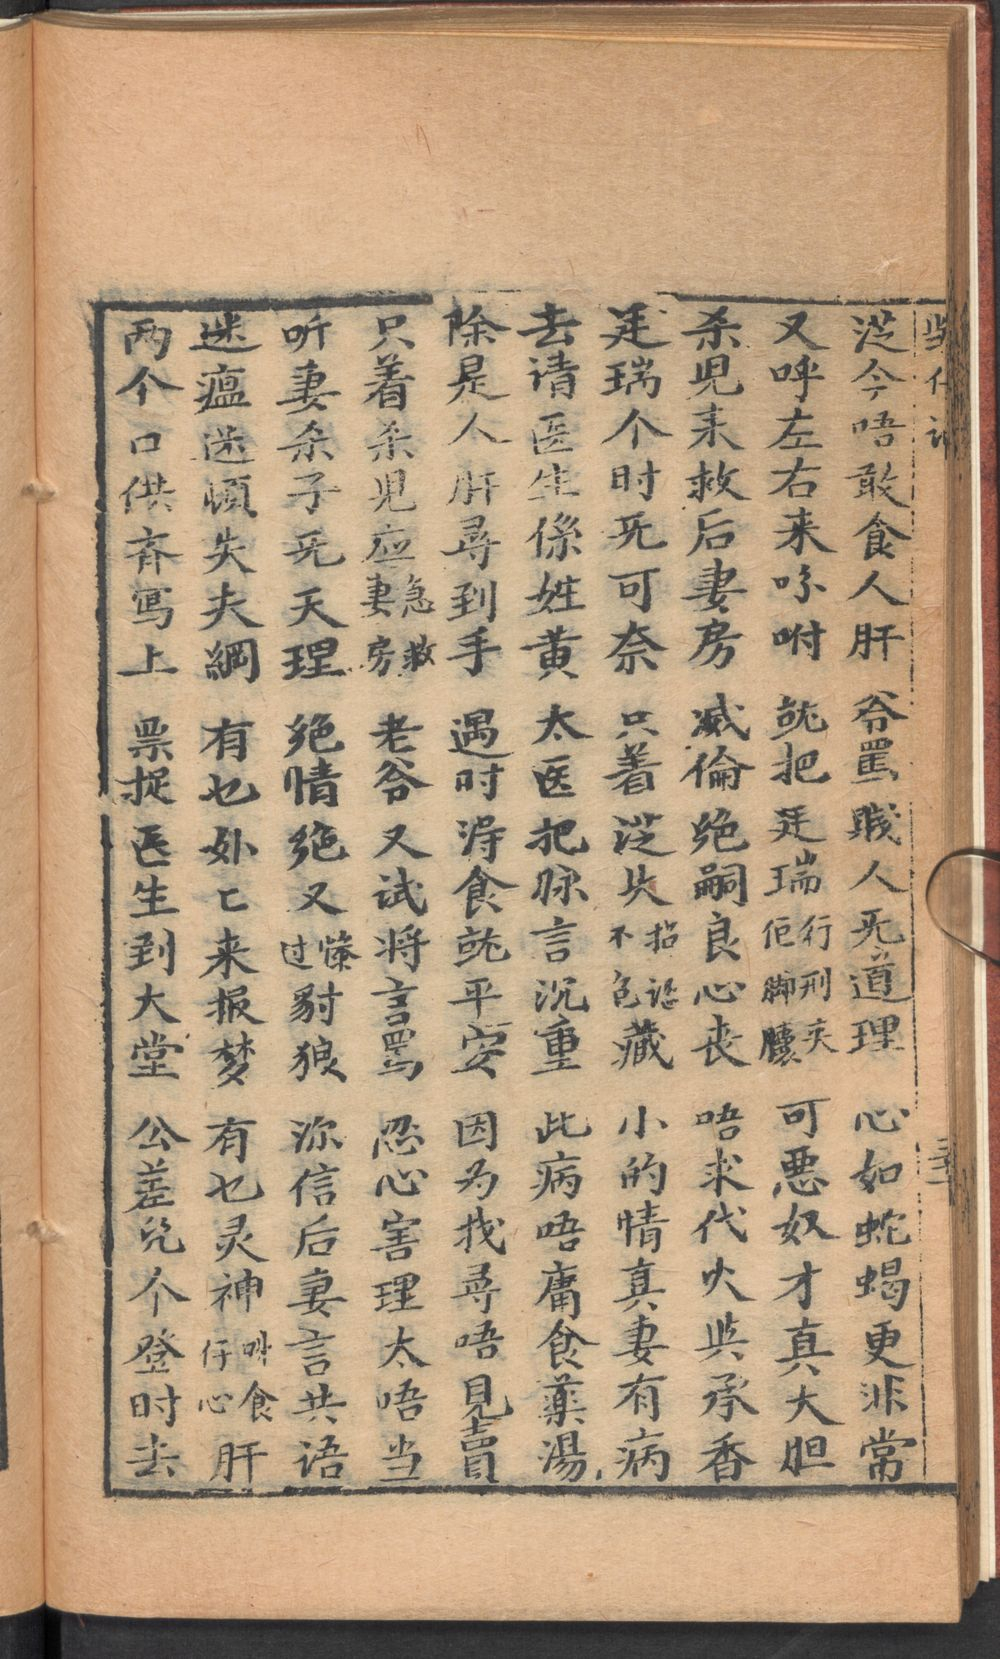 从今唔敢食人肝 爷骂贱人旡道理 心如蛇蝎更非常
又呼左右来吩咐 就把廷瑞行刑夹佢脚𬂩 可恶奴才真大胆
杀児来救后妻房 威倫绝嗣良心丧 唔求代火与承香
廷瑞个时旡可奈 只着从头招認不包藏 小的情真妻有病
去请医生係姓黄 太医把脉言沉重 此病唔庸食薬湯
除是人肝尋到手 遇时淂食就平安 因为找尋唔見賣
只着杀児应急救妻房 老爷又试将言骂 忍心害理太唔当
听妻杀子旡天理 绝情绝义過豺狼 你信后妻言共语
迷瘟迷頓失夫綱 有乜外亡来报梦 有乜灵神叫食仔心肝
两个口供齐寫上 票捉医生到大堂 公差几个登时去